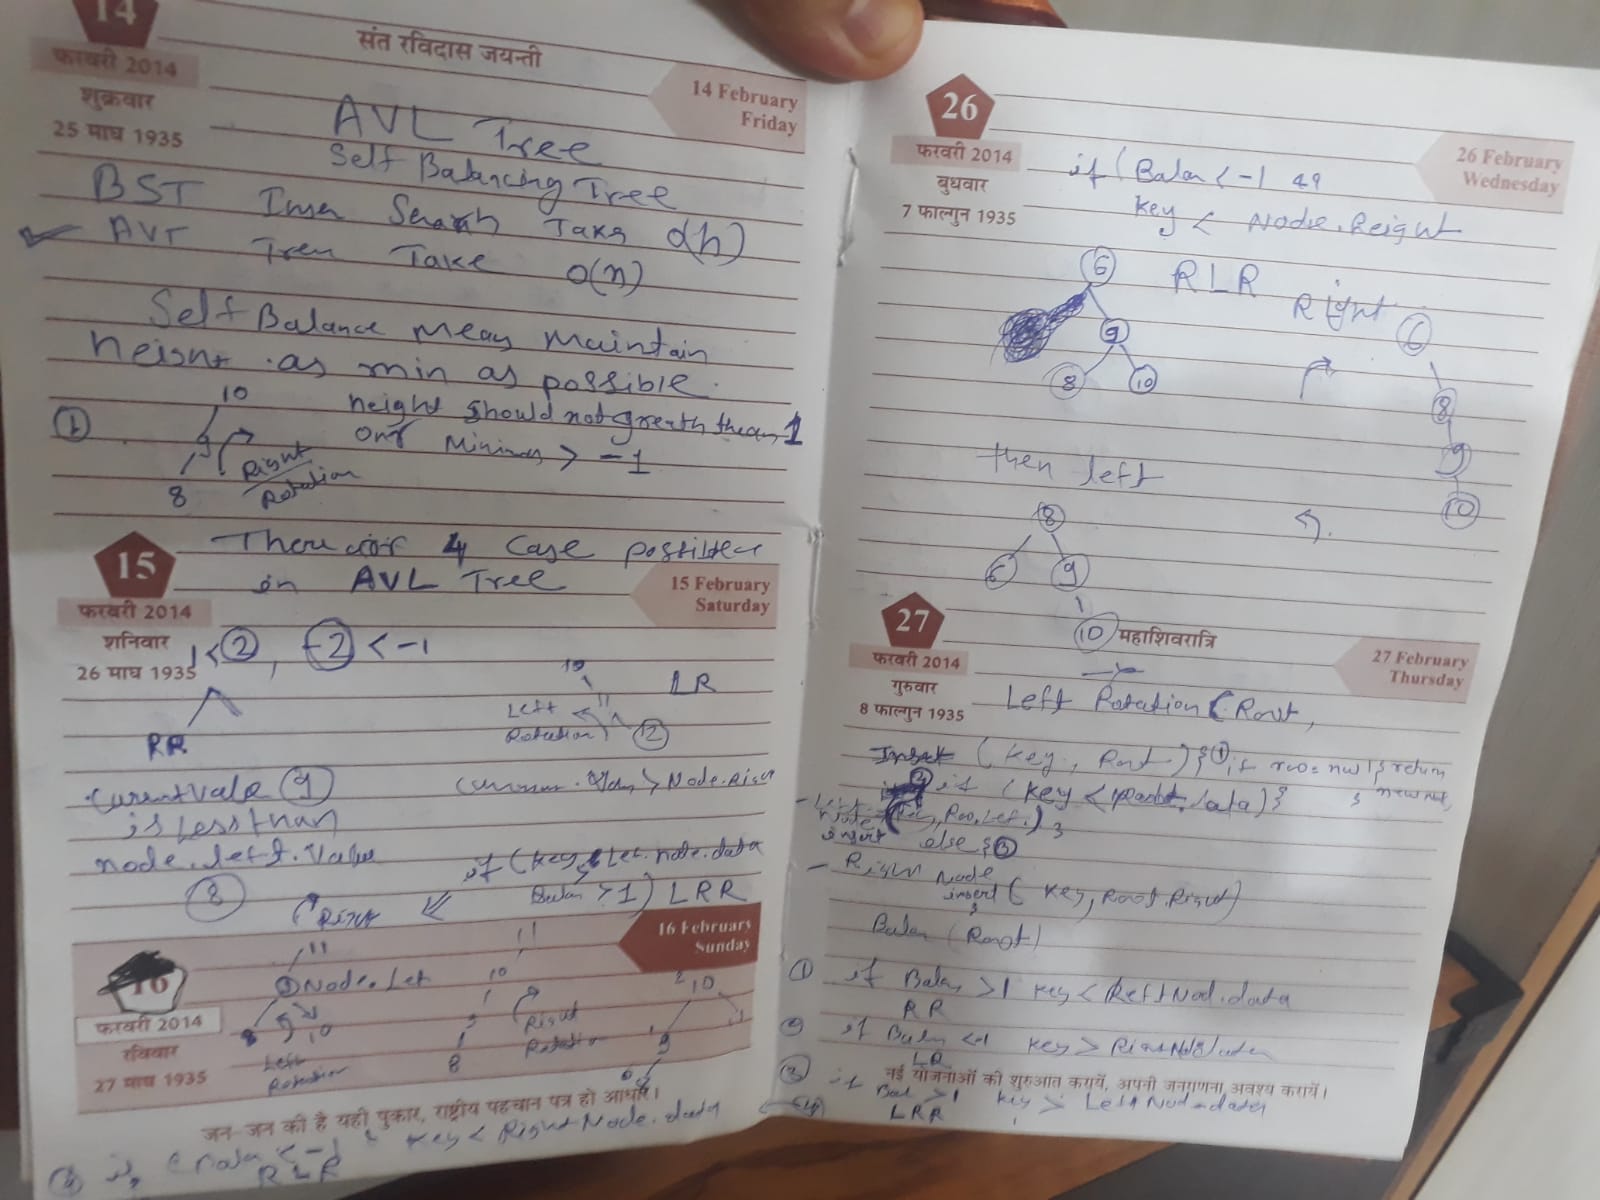 14
संत रविदास जयन्ती
फरवरी 2014
शुक्रवार
25 माघ 1935
14 February
Friday
AVL Tree
Self Balancing Tree
BST Inser Serarh Taks O(h)
AVT Tren Take O(n)
Self Balance meay maintain
heisnt as min as possible.
10
9
8
Right
Rotation
1
height should not greath then 1
Minimum > -1
There 4 Case possible
in AVL Tree
15
फरवरी 2014
शनिवार
26 माघ 1935
15 February
Saturday
1 < 2 , -2 < -1
RR
10
11
12
Left
Rotation
LR
Curent Vale 9
is Less than
node.left.Value
8
> Node.Risut
if (key Let.node.data
Balan > 1) LRR
Risut
16
फरवरी 2014
रविवार
27 माघ 1935
16 February
Sunday
11
Node.Let
8
10
Left
Rotation
11
10
9
8
Risut
Rotation
2 10
11
9
जन-जन की है यही पुकार, राष्ट्रीय पहचान पत्र हो आधार।
4 if < -1 key < Right Node.data
RLR
26
फरवरी 2014
बुधवार
7 फाल्गुन 1935
26 February
Wednesday
if (Balan < -1 49
key < Node.Reight
6
9
8
10
RLR
Right
6
8
9
10
then left
8
6
9
10
27
महाशिवरात्रि
फरवरी 2014
गुरुवार
8 फाल्गुन 1935
27 February
Thursday
Left Rotation (Root,
Insert (key, Root) { 1 if roo = null { return
2 if (key < data) {
Left
Node
insert
else { 3
- Risut Node
insert (key, Root.Risut)
}
Balan (Root)
1 if Balan > 1 key < Left Nod.data
RR
2 if Balan < 1 key >
LR
3 if Bal > 1 key > Left Nod.data
LRR
4
नई योजनाओं की शुरुआत करायें, अपनी जनगणना, अवश्य करायें।